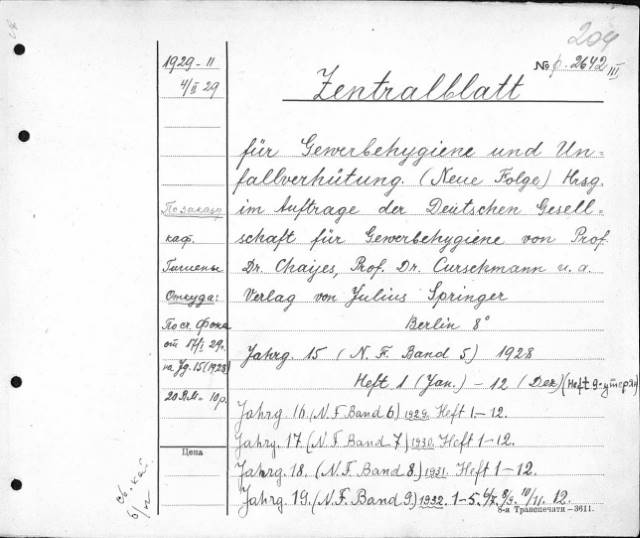 204
1929-11
4/II 29
№ p. 2642 III
Zentralblatt
für Gewerbehygiene und Un=
fallverhütung. (Neue Folge) Hrsg.
По заказу
im Auftrage der Deutschen Gesell=
каф.
schaft für Gewerbehygiene von Prof.
Гигиены
Dr. Chajes, Prof. Dr. Curschmann u. a.
Откуда:
Verlag von Julius Springer
По сч. фона
Berlin 8°
от 17/I 29.
Jahrg. 15 (N. F. Band 5) 1928
на Jg. 15 (1928)
Heft 1 (Jan.) - 12 (Dez) (Heft 9-утерян)
20 RM - 10 p.
Jahrg. 16 (N. F. Band 6) 1929. Heft 1-12.
Jahrg. 17 (N. F. Band 7) 1930. Heft 1-12.
Цена
Jahrg. 18. (N. F. Band 8.) 1931. Heft 1-12.
Jahrg. 19. (N. F. Band 9) 1932. 1-5. 6/7. 8/9. 10/11. 12.
8-я Транспечати-3611.